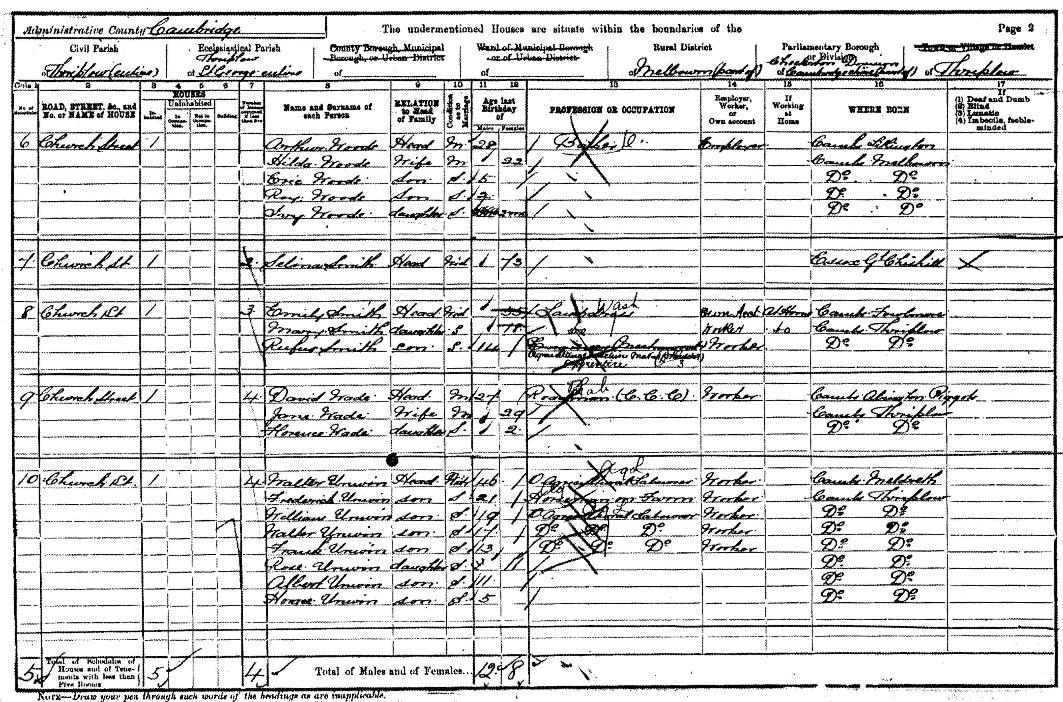 Administrative County Cambridge
The undermentioned Houses are situate within the boundaries of the
Page 2
Civil Parish
of Thriplow (entire)
Ecclesiastical Parish
Thriplow
of St George entire
County Borough, Municipal Borough, or Urban District
of
Ward of Municipal Borough or of Urban District
of
Rural District
of Melbourn (part of)
Parliamentary Borough or Division
of
of Thriplow
Cols 1 2 3 4 5 6 7 8 9 10 11 12 13 14 15 16 17
No. of Schedule
ROAD, STREET, &c., and No. or NAME of HOUSE
HOUSES
Inhabited
Uninhabited
In Occupation.
Not in Occupation.
Building
Name and Surname of each Person
RELATION to Head of Family
Condition as to Marriage
Age last Birthday of
Males Females
PROFESSION OR OCCUPATION
Employer, Worker, or Own account
If Working at Home
WHERE BORN
If
(1) Deaf and Dumb
(2) Blind
(3) Lunatic
(4) Imbecile, feeble-minded
6 Church Street 1 Arthur Woods Head M 28 Employer Cambs
Hilda Woods Wife M 22 Cambs Melbourn
Eric Woods son S 5 Do Do
Roy Woods Son S 2 Do Do
Ivy Woods daughter S Do Do
7 Church St 1 2 Selina Smith Head Wid 73 Essex Gt Chishill
8 Church St 1 3 Emily Smith Head Wid 55 Laundress Wash Own Acct At Home Cambs
Mary Smith daughter S 18 do Worker do Cambs Thriplow
Rufus Smith son S 14 Worker Do Do
9 Church Street 1 4 David Wade Head M 27 Roadman (C.C.C) Worker Cambs Abington Piggots
Jane Wade Wife M 29 Cambs Thriplow
Florence Wade daughter S 2 Do Do
10 Church St. 1 4 Walter Unwin Head Widr 46 Agricultural Labourer Worker Cambs Meldreth
Frederick Unwin son S 21 Horseman on Farm Worker Cambs Thriplow
William Unwin son S 19 Agricultural Labourer Worker Do Do
Walter Unwin son S 17 Do Do Do Worker Do Do
Frank Unwin son S 13 Do Do Do Worker Do Do
Rose Unwin daughter S Do Do
Albert Unwin son S 11 Do Do
Horace Unwin son S 5 Do Do
5 Total of Schedules of Houses and of Tenements with less than Five Rooms 5 4 Total of Males and of Females... 12 8
NOTE—Draw your pen through such words of the headings as are inapplicable.